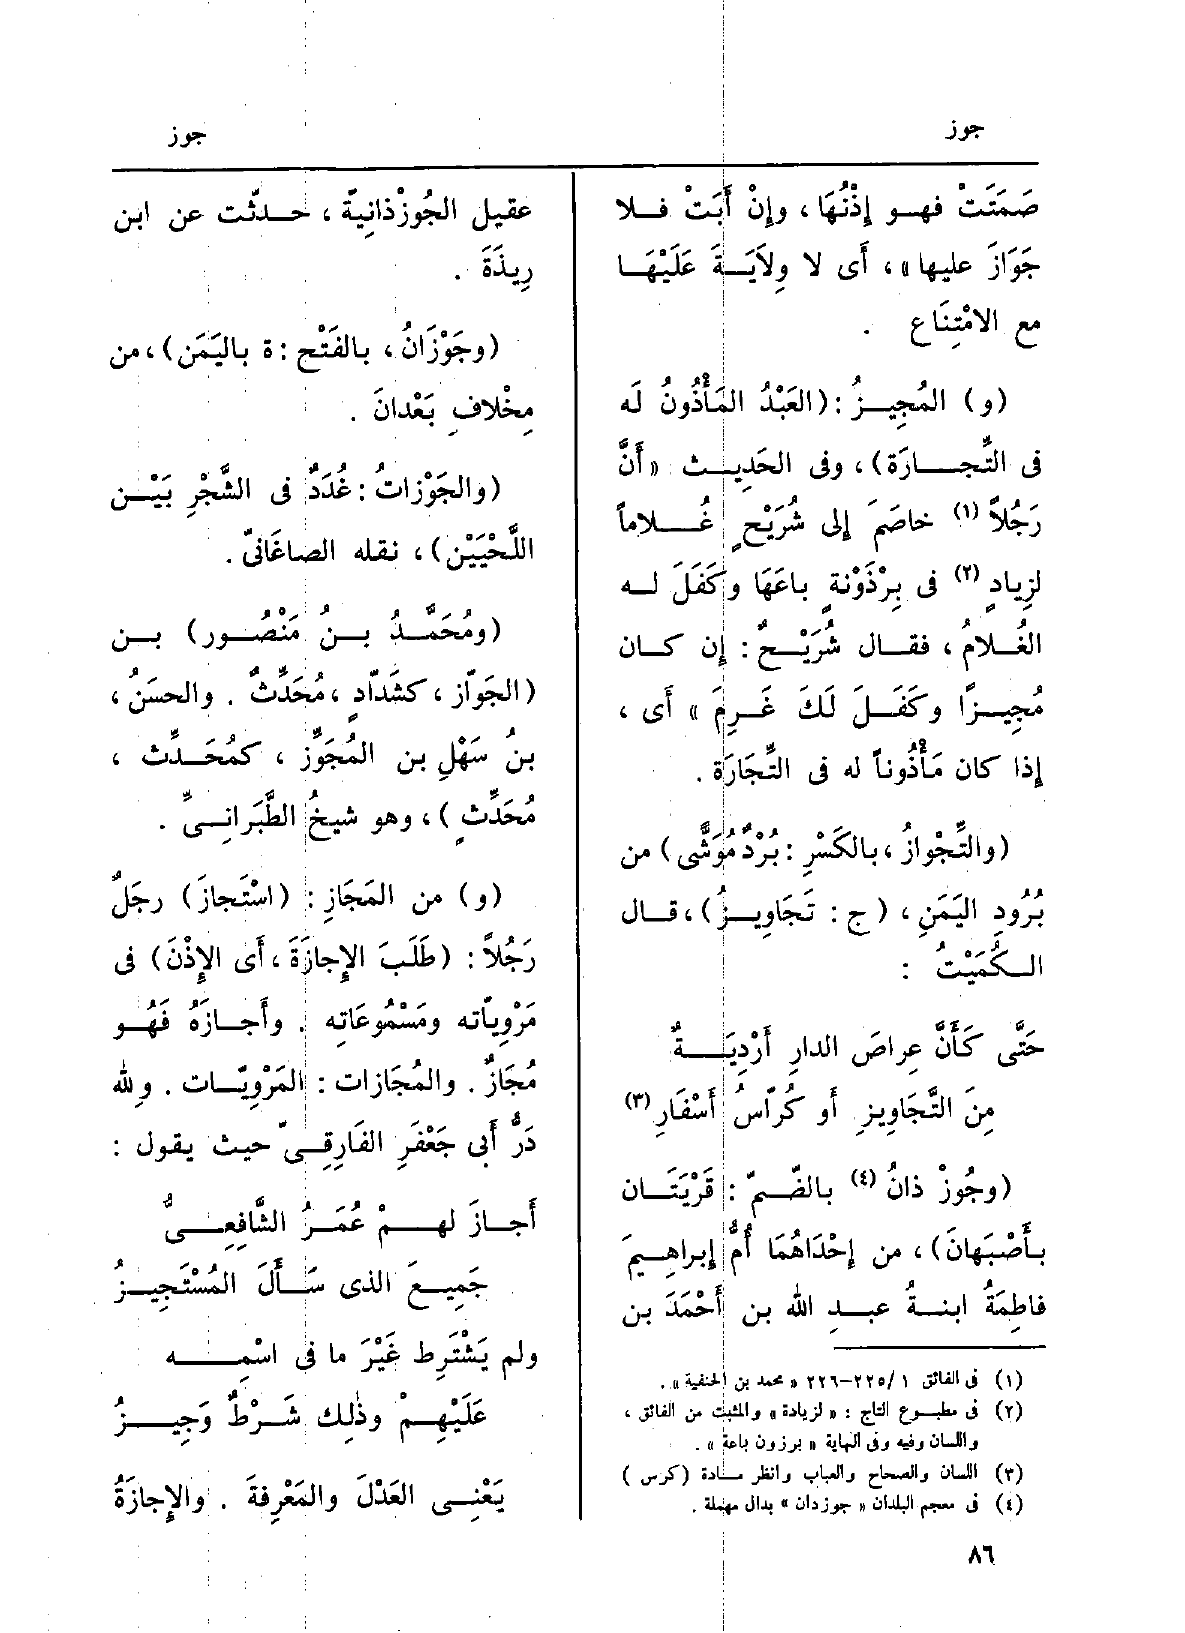 جوز
جوز
صَمَتَتْ فهـو إِذْنُهَا، وإِنْ أَبَتْ فـلا
جَوَازَ عليها»، أَى لا وِلاَيَـةَ عَلَيْهَـا
مع الامْتِنَاع .
(و) المُجِيـزُ : (العَبْدُ المَأْذُونُ لَه
فى التِّجـارَة)، وفى الحَدِيـث «أَنَّ
رَجُلاً (١) خاصَمَ إلى شُرَيْحٍ غُـلاماً
لزِيادٍ (٢) فى بِرْذَوْنةٍ باعَهَا وكَفَلَ لـه
الغُـلامُ، فقـال شُرَيْـحٌ : إِن كـان
مُجِيـزًا وكَفَـلَ لَكَ غَـرِمَ» أَى،
إذا كان مَأْذُوناً له فى التِّجَارَة .
(والتِّجْوازُ، بالكَسْرِ : بُرْدٌ مُوَشًّى) من
بُرُودِ اليَمَنِ، (ج : تَجَاوِيـزُ)، قـال
الـكُمَيْتُ :
حَتَّى كَأَنَّ عِراصَ الدارِ أَرْدِيَـةٌ
مِنَ التَّجَاوِيزِ أَو كُرّاسُ أَسْفَارِ (٣)
(وجُوزْ ذانُ (٤) بالضَّـمّ : قَرْيَتَـان
بـأَصْبَهانَ)، من إِحْدَاهُمَا أُمُّ إبراهِيـمَ
فاطِمَةُ ابنـةُ عبـدِ الله بن أَحْمَدَ بن
(١) فى الفائق ١ /٢٢٥-٢٢٦ «محمد بن الحنفية».
(٢) فى مطبـوع التاج : «لزيادة» والمثبت من الفائق،
واللسان وفيه وفى النهاية «برزون باعة» .
(٣) اللسان والصحاح والعباب وانظر مـادة (كرس)
(٤) فى معجم البلدان « جوزدان » بدال مهملة .
عقيل الجُوزْذانِيَّة، حـدثّت عن ابن
رِيذَةَ .
(وجَوْزَانُ، بالفَتْح : ة باليَمَن)، من
مِخْلافِ بَعْدانَ .
(والجَوْزاتُ : غُدَدٌ فى الشَّجْرِ بَيْـن
اللَّحْيَيْن)، نقله الصاغَانىّ .
(ومُحَمَّـدُ بـنُ مَنْصُـور) بـن
(الجَوّاز، كشَدّادٍ، مُحَدِّثٌ . والحسَنُ،
بنُ سَهْلِ بن المُجَوِّز، كمُحَـدِّث،
مُحَدِّثٍ)، وهو شيخُ الطَّبَرانِـىِّ .
(و) من المَجَازِ : (اسْتَجازَ) رجَلٌ
رَجُلاً : (طَلَبَ الإِجازَةَ، أَى الإِذْنَ) فى
مَرْوِيّاته ومَسْمُوعَاتِه . وأَجـازَهُ فَهُـو
مُجَازٌ . والمُجَازات : المَرْوِيّـات . ولله
دَرُّ أَبى جَعْفَرِ الفَارِقِـىّ حيث يقول :
أَجـازَ لهـمْ عُمَـرُ الشَّافِعِـىُّ
جَمِيـعَ الذى سَـأَلَ المُسْتَجِيـزُ
ولم يَشْتَرِط غَيْرَ ما فى اسْمِـه
عَلَيْهِـمْ وذٰلِك شَـرْطٌ وَجِيـزُ
يَعْنِـى العَدْلَ والمَعْرِفةَ . والإِجازَةُ
٨٦